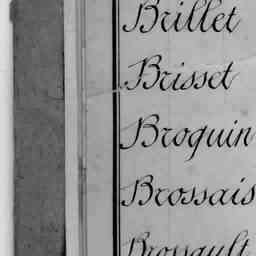 Brillet
Brisset
Broquin
Brossais
Brossault